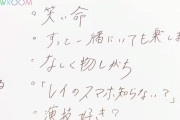 ROOM
・笑い命
・ずっと一緒にいても楽し
・なくし物しがち
・「レイのスマホ知らない?」
・演技好き?